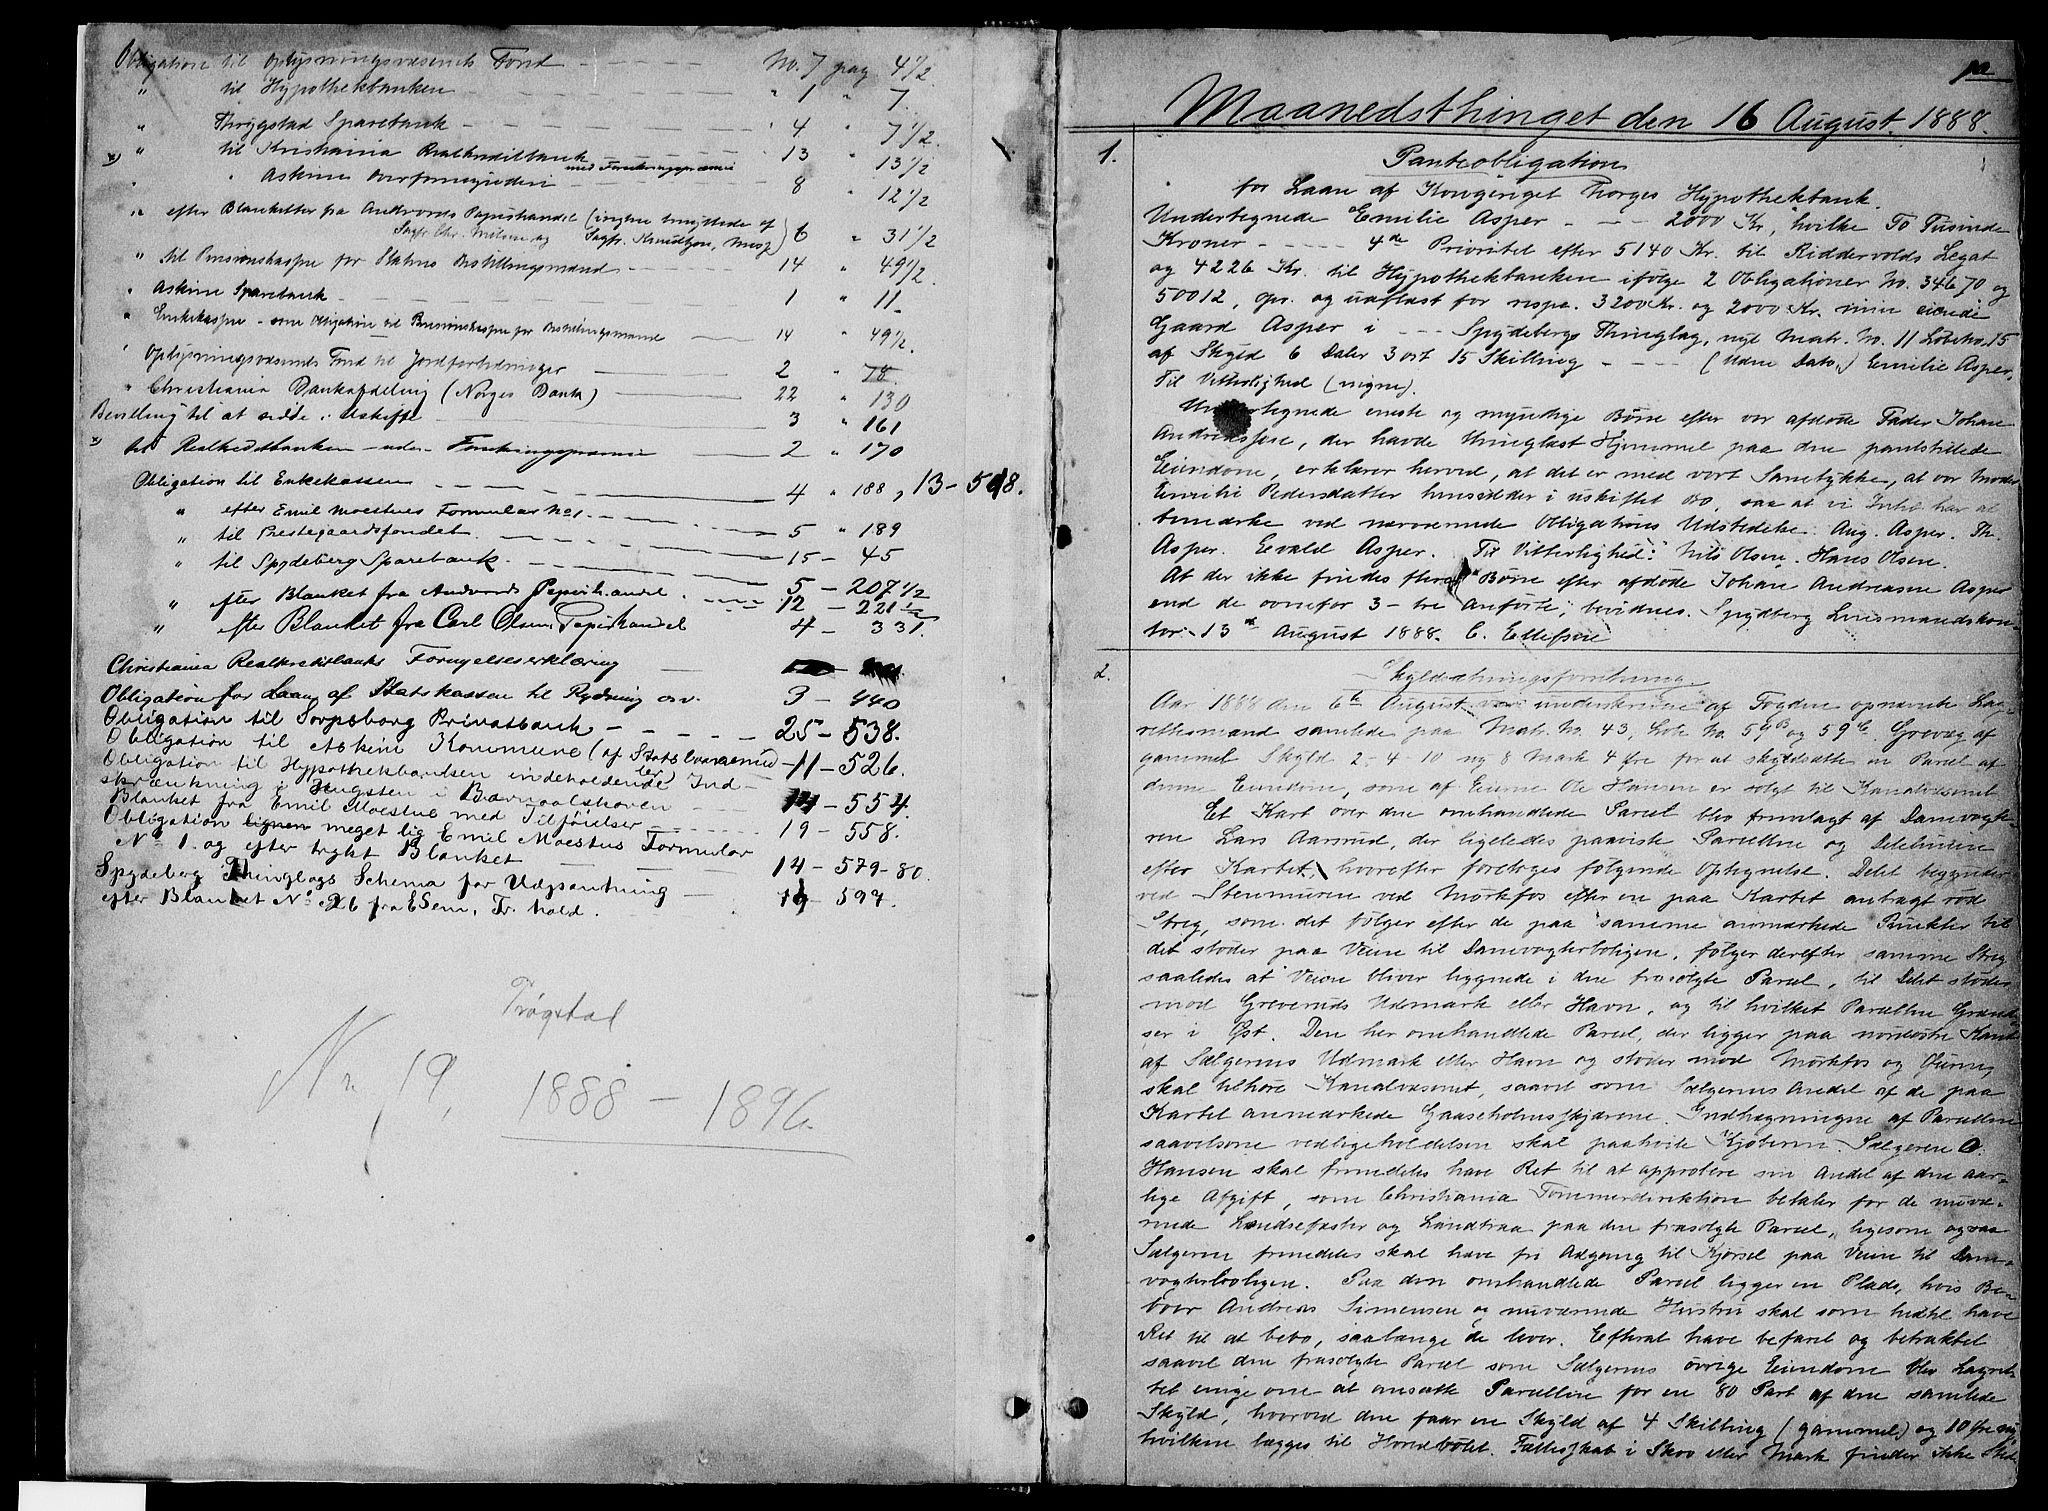 Obligation til Oplysningsvæsenets Fond - - - - No. 7 pag 4 1/2
" til Hypothekbanken - - - - " 1 " 7.
" Thrygstad Sparebank - - - - " 4 " 7 1/2.
x) " til Kristiania Realkreditbank med Forsikringspræmie 13 " 13 1/2
" " Askims Overformynderi - - - 8 " 12 1/2
" efter Blanketter fra Andvords Papirhandel (ingen benyttede af
Sagfr. Chr. Nilsen og Sagfr. Knudtzon, Moss) 6 " 31 1/2
" til Pensionskasse for Statens Bestillingsmænd - - - 14 " 49 1/2
" Askim Sparebank - - - - 1 " 11
" Enkekasse - som Obligation til Pensionskasse for Bestillingsmænd 14 " 49 1/2.
" Oplysningsvæsenets Fond til Jordfortedninger 2 " 78.
" Christiania Bankafdeling (Norges Bank) 22 " 130
Bevilling til at sidde i Uskifte 3 " 161
x) til Realkreditbanken uden Forsikringspræmie 2 " 170
Obligation til Enkekassen 4 " 188, 13-518.
" efter Emil Moestues Formular No 1. 5 " 189
" til Prestegaardsfondet. 15 - 45
" til Spydeberg Sparebank. 5 - 207 1/2
" efter Blanket fra Andvords Papirhandel. 12 - 221 1/2
" efter Blanket fra Carl Olsens Papirhandel 4 - 331.
Christiania Realkreditbanks Fornyelseserklæring
Obligation for Laan af Statskassen til Rydning osv. 3 - 440
Obligation til Sarpsborg Privatbank - - - - 25 - 538.
Obligation til Askim Kommune (af Statslaanemidler) 11 - 526.
Obligation til Hypothekbanken indeholdende Ind-
skrænkning i Hugsten i Barnaalskoven 14 - 554.
Blanket fra Emil Moestue med Tilføielser 19 - 558.
Obligation lignen meget lig Emil Moestues Formular
No 1. og efter trykt Blanket 14 - 579-80.
Spydeberg Thinglags Schema for Udpantning
efter Blanket No 26 fra E Sem, Fr.hald. 14 - 599.
Trøgstad
Nr. 19. 1888 - 1896.
Maanedsthinget den 16 August 1888.
1. Panteobligation
for Laan af Kongeriget Norges Hypothekbank.
Undertegnede Emilie Asper - - - 2000 Kr, hvilke To Tusinde
Kroner - - - - 4de Prioritet efter 5140 Kr. til Riddervolds Legat
og 4226 Kr. til Hypothekbanken ifølge 2 Obligationer No. 34670 og
50012, opr. og uaflæst for resp. 3200 Kr. og 2000 Kr. min eiende
Gaard Asper i - - - Spydeberg Thinglag, nyt Matr. No. 11 Løbeno. 15
af Skyld 6 Daler 3 ort 15 Skilling - - - - (Uden Dato,) Emilie Asper,
Til Vitterlighed (ingen).
Undertegnede eneste og myndige Børn efter vor afdøde Fader Johan
Andreassen, der havde thinglæst Hjemmel paa den pantstillede
Eiendom, erklærer herved, at det er med vort Samtykke, at vor Moder
Emilie Pedersdatter hensidder i uskiftet Bo, saa at vi Intet har at
bemærke ved nærværende Obligations Udstedelse. Aug. Asper. Th.
Asper. Eevald Asper. Til Vitterlighed: Nils Olsen. Hans Olsen.
At der ikke findes flere Børn efter afdøde Johan Andreasen Asper
end de ovenfor 3 - tre anførte, bevidnes. Spydberg Lensmandskon-
tor 13de August 1888. C. Ellefsen
2. Skyldsætningsforretning.
Aar 1888 den 6te August var underskrevne af Fogden opnævnte Lag-
rettesmænd samlede paa Matr. No. 43, Løbe No. 59b og 59c Grevæg af
gammel Skyld 2-4-10 ny 8 Mark 4 Øre for at skyldsætte en Parcel af
denne Eiendom, som af Eieren Ole Hansen er solgt til Kanalvæsenet
Et Kart over den omhandlede Parcel blev fremlagt af Damvogte-
ren Lars Aarsrud, der ligeledes paaviste Parcellen og Delelinien
efter Kartet, hvorefter foretoges følgende Optegnelse. Delet begynder
ved Stenmuren ved Mørkfos efter en paa Kartet antragt rød
Streg, som det følger efter de paa samme anmærkede Punkter til
det støder paa Veien til Damvogterboligen, følger derefter samme Streg
saaledes at Veien bliver liggende i den frasolgte Parcel, til Delet støder
mod Greveruds Udmark eller Havn, og til hvilket Parcellen Grænd-
ser i Øst. Den her omhandlede Parcel, der ligger paa nordøstre Kant
af Sælgerens Udmark eller Havn og støder mod Mørkfos og Øieren,
skal tilhøre Kanalvæsenet, saavel som Sælgerens Andel af de paa
Kartet anmærkede Gaaseholmsskjærene. Indhægningen af Parcellen
saavelsom vedligeholdelsen skal paahvile Kjøberen. Sælgeren O.
Hansen skal fremdeles have Ret til at oppebære sin Andel af den aar-
lige Afgift, som Christiania Tømmerdirektion betaler for de nuvæ-
rende Landsefæster og Landtraa paa den frasolgte Parcel, ligesom ogsaa
Sælgeren fremdeles skal have fri Adgang til Kjørsel paa Veien til Dam-
vogterboligen. Paa den omhandlede Parcel ligger en Plads, hvis Be-
boer Andreas Simensen og nuværende Hustru skal som hidtil have
Ret til at bebo, saalænge de lever. Efterat have befaret og betraktet
saavel den frasolgte Parcel som Sælgerens øvrige Eiendom blev Lagret-
tet enige om at ansætte Parcellen for en 80 Part af den samlede
Skyld, hvorved den faar en Skyld af 4 Skilling (gammel) og 10 Øre ny
hvilken lægges til Hovedbølet. Fællesskab i Skov eller Mark finder ikke Sted